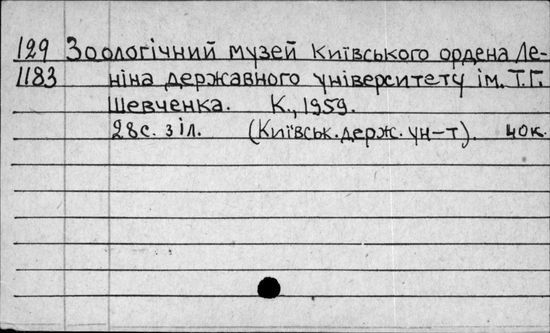 129 Зоологічний музей Київського ордена Ле-
1183 ніна державного університету ім. Т.Г.
Шевченка. К., 1959.
28с. з іл. (Київськ. держ. ун-т). 40к.